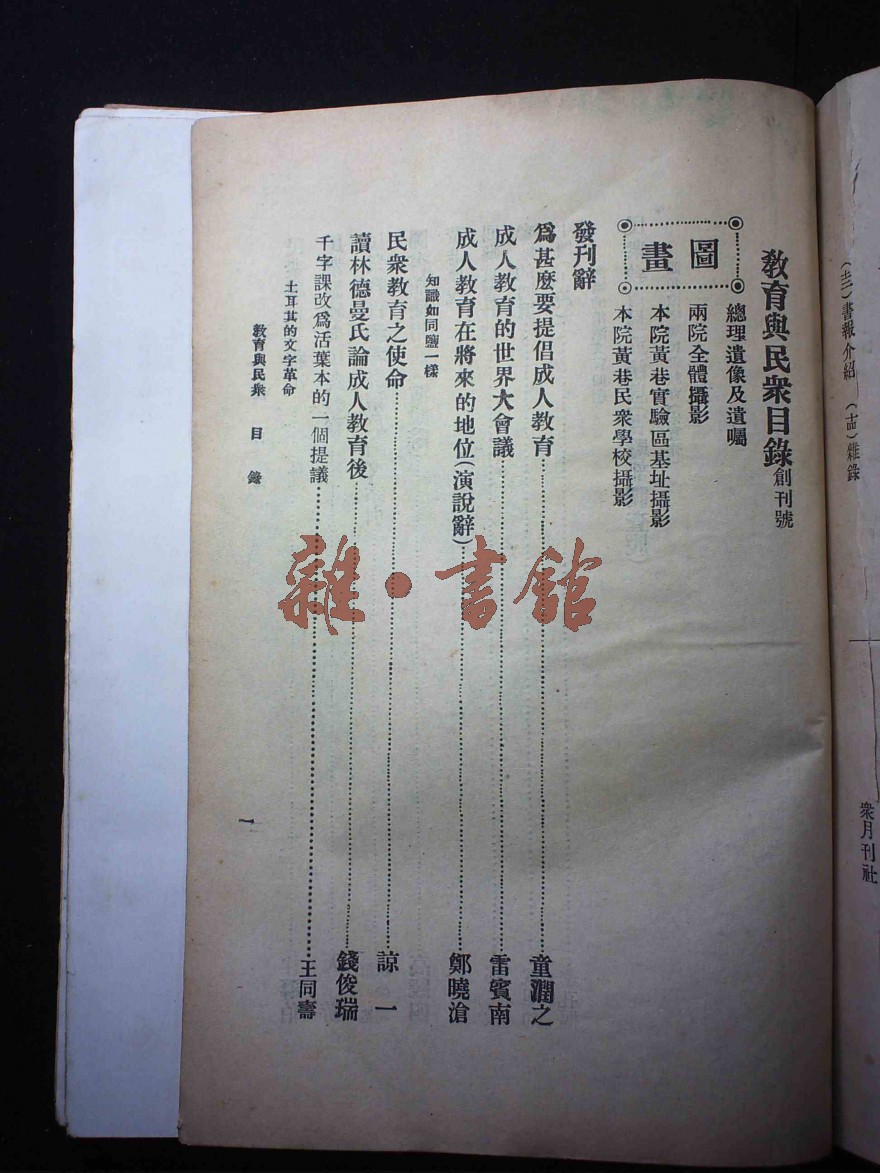 （圭）書報介紹　（吉）雜錄
衆月刊社
教育與民衆目錄創刊號
圖畫
總理遺像及遺囑
兩院全體攝影
本院黃巷實驗區基址攝影
本院黃巷民衆學校攝影
發刊辭
爲甚麼要提倡成人教育……童潤之
成人教育的世界大會議……雷賓南
成人教育在將來的地位（演說辭）……鄭曉滄
知識如同鹽一樣
民衆教育之使命……諒一
讀林德曼氏論成人教育後……錢俊瑞
千字課改爲活葉本的一個提議……王同壽
土耳其的文字革命
教育與民衆　目錄
一
雜·書館